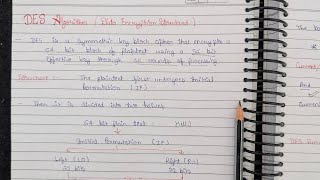 DES Algorithm (Data Encryption Standard)
- DES is a symmetric key block cipher that encrypts a
64 bit block of plaintext using a 56 bit
effective key through 16 rounds of processing
Structure :- The plaintext first undergoes Initial
Permutation (IP)
- Then it is divided into two halves
64 bit plain text
Initial Permutation (IP)
Left (L0) Right (R0)
32 bits 32 bits